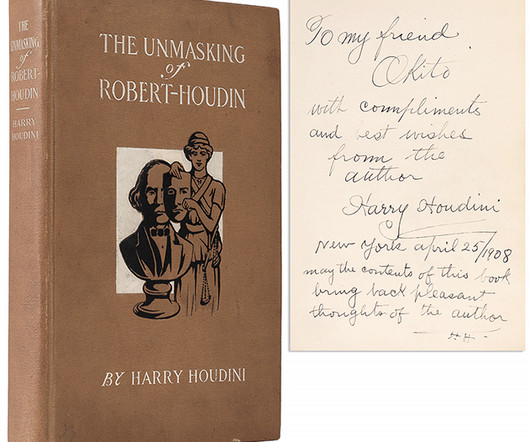 THE
UNMASKING
of
ROBERT-
HOUDIN
HARRY
HOUDINI
THE UNMASKING
of
ROBERT-HOUDIN
BY HARRY HOUDINI
To my friend
Okito
with compliments
and best wishes
from the
author
Harry Houdini
New York april 25/1908
may the contents of this book
bring back pleasant
thoughts of the author
H.H.